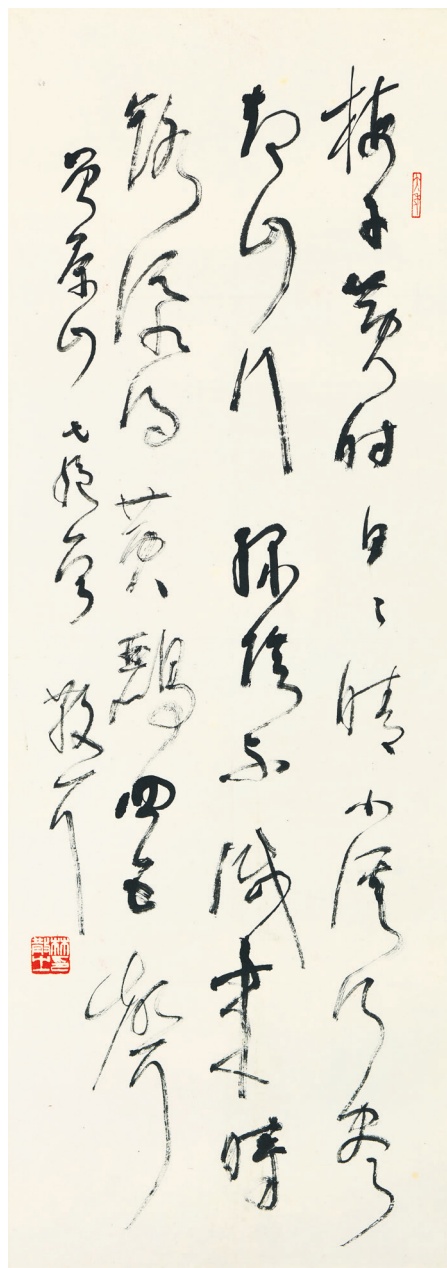 梅子黃時日〻晴小溪泛盡
却山行綠陰不減來時
路添得黃鸝四五聲
曾茶山七絕一首 散耳